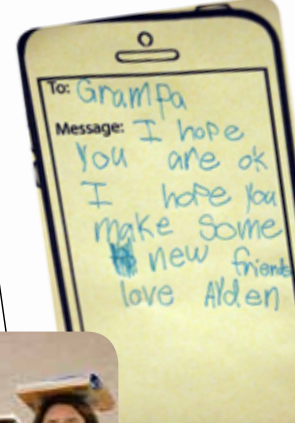 To: Grampa
Message: I hope
you are ok
I hope you
make some
new friends
love Alden